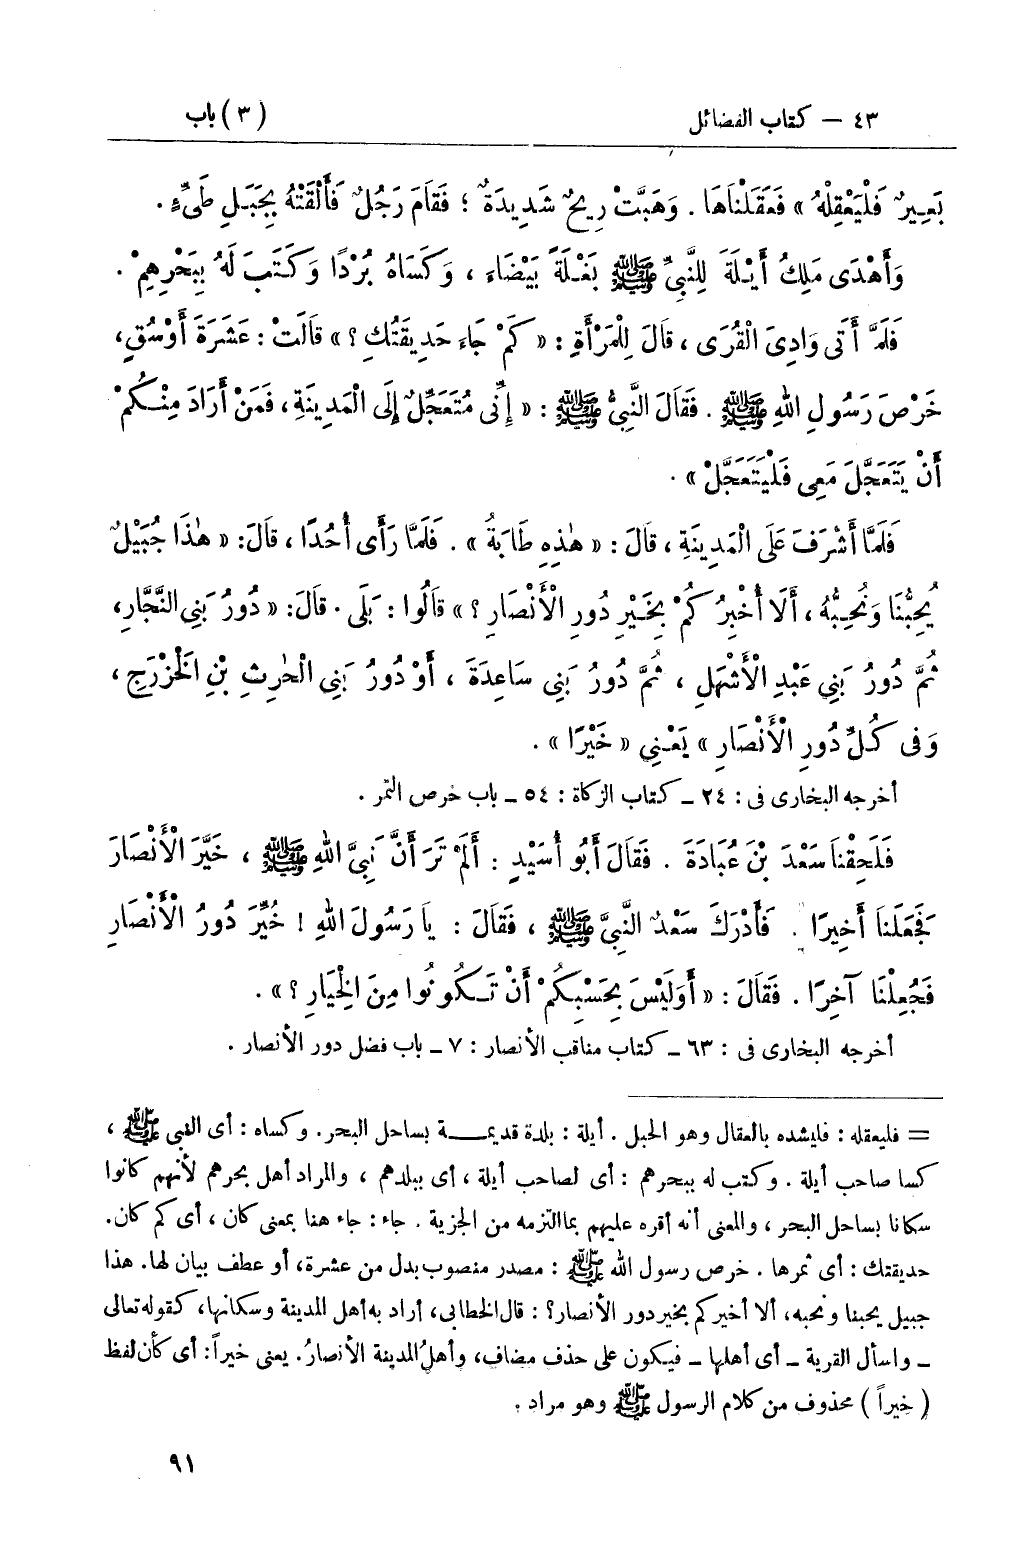 ٤٣ – كتاب الفضائل (٣) باب
بَعِيرٌ فَلْيَعْقِلْهُ » فَعَقَلْنَاهَا . وَهَبَّتْ رِيحٌ شَدِيدَةٌ ؛ فَقَامَ رَجُلٌ فَأَلْقَتْهُ بِجَبَلِ طَيِّءٍ .
وَأَهْدَى مَلِكُ أَيْلَةَ لِلنَّبِيِّ ﷺ بَغْلَةً بَيْضَاءَ ، وَكَسَاهُ بُرْدًا وَكَتَبَ لَهُ بِبَحْرِهِمْ .
فَلَمَّا أَتَى وَادِىَ الْقُرَى ، قَالَ لِلْمَرْأَةِ : « كَمْ جَاءَ حَدِيقَتُكِ ؟ » قَالَتْ : عَشَرَةَ أَوْسُقٍ ،
خَرْصَ رَسُولِ اللهِ ﷺ . فَقَالَ النَّبِيُّ ﷺ : « إِنِّى مُتَعَجِّلٌ إِلَى الْمَدِينَةِ ، فَمَنْ أَرَادَ مِنْكُمْ
أَنْ يَتَعَجَّلَ مَعِى فَلْيَتَعَجَّلْ » .
فَلَمَّا أَشْرَفَ عَلَى الْمَدِينَةِ ، قَالَ : « هٰذِهِ طَابَةُ » . فَلَمَّا رَأَى أُحُدًا ، قَالَ : « هٰذَا جُبَيْلٌ
يُحِبُّنَا وَنُحِبُّهُ ، أَلَا أُخْبِرُكُمْ بِخَيْرِ دُورِ الْأَنْصَارِ ؟ » قَالُوا : بَلَى . قَالَ : « دُورُ بَنِى النَّجَّارِ ،
ثُمَّ دُورُ بَنِي عَبْدِ الْأَشْهَلِ ، ثُمَّ دُورُ بَنِى سَاعِدَةَ ، أَوْ دُورُ بَنِى الْحٰرِثِ بْنِ الْخَزْرَجِ ،
وَفِى كُلِّ دُورِ الْأَنْصَارِ » يَعْنِي « خَيْرًا » .
أخرجه البخارى فى : ٢٤ ـ كتاب الزكاة : ٥٤ ـ باب خرص التمر .
فَلَحِقْنَا سَعْدَ بْنَ عُبَادَةَ . فَقَالَ أَبُو أُسَيْدٍ : أَلَمْ تَرَ أَنَّ نَبِىَّ اللهِ ﷺ ، خَيَّرَ الْأَنْصَارَ
فَجَعَلَنَا أَخِيرًا . فَأَدْرَكَ سَعْدٌ النَّبِىَّ ﷺ ، فَقَالَ : يَا رَسُولَ اللهِ ! خُيِّرَ دُورُ الْأَنْصَارِ
فَجُعِلْنَا آخِرًا . فَقَالَ : « أَوَلَيْسَ بِحَسْبِكُمْ أَنْ تَكُونُوا مِنَ الْخِيَارِ ؟ » .
أخرجه البخارى فى : ٦٣ ـ كتاب مناقب الأنصار : ٧ ـ باب فضل دور الأنصار .
= فليعقله : فليشده بالعقال وهو الحبل . أيلة : بلدة قديمــة بساحل البحر . وكساه : أى النبى ﷺ ،
كسا صاحب أيلة . وكتب له ببحرهم : أى لصاحب أيلة ، أى ببلدهم ، والمراد أهل بحرهم لأنهم كانوا
سكانا بساحل البحر ، والمعنى أنه أقره عليهم بما التزمه من الجزية . جاء : جاء هنا بمعنى كان ، أى كم كان .
حديقتك : أى ثمرها . خرص رسول الله ﷺ : مصدر منصوب بدل من عشرة ، أو عطف بيان لها . هذا
جبيل يحبنا ونحبه ، ألا أخبركم بخير دور الأنصار؟ : قال الخطابى ، أراد به أهل المدينة وسكانها ، كقوله تعالى
ـ واسأل القرية ـ أى أهلها ـ فيكون على حذف مضاف ، وأهلُ المدينة الأنصارُ . يعنى خيراً : أى كأن لفظ
( خيراً ) محذوف من كلام الرسول ﷺ وهو مراد .
٩١